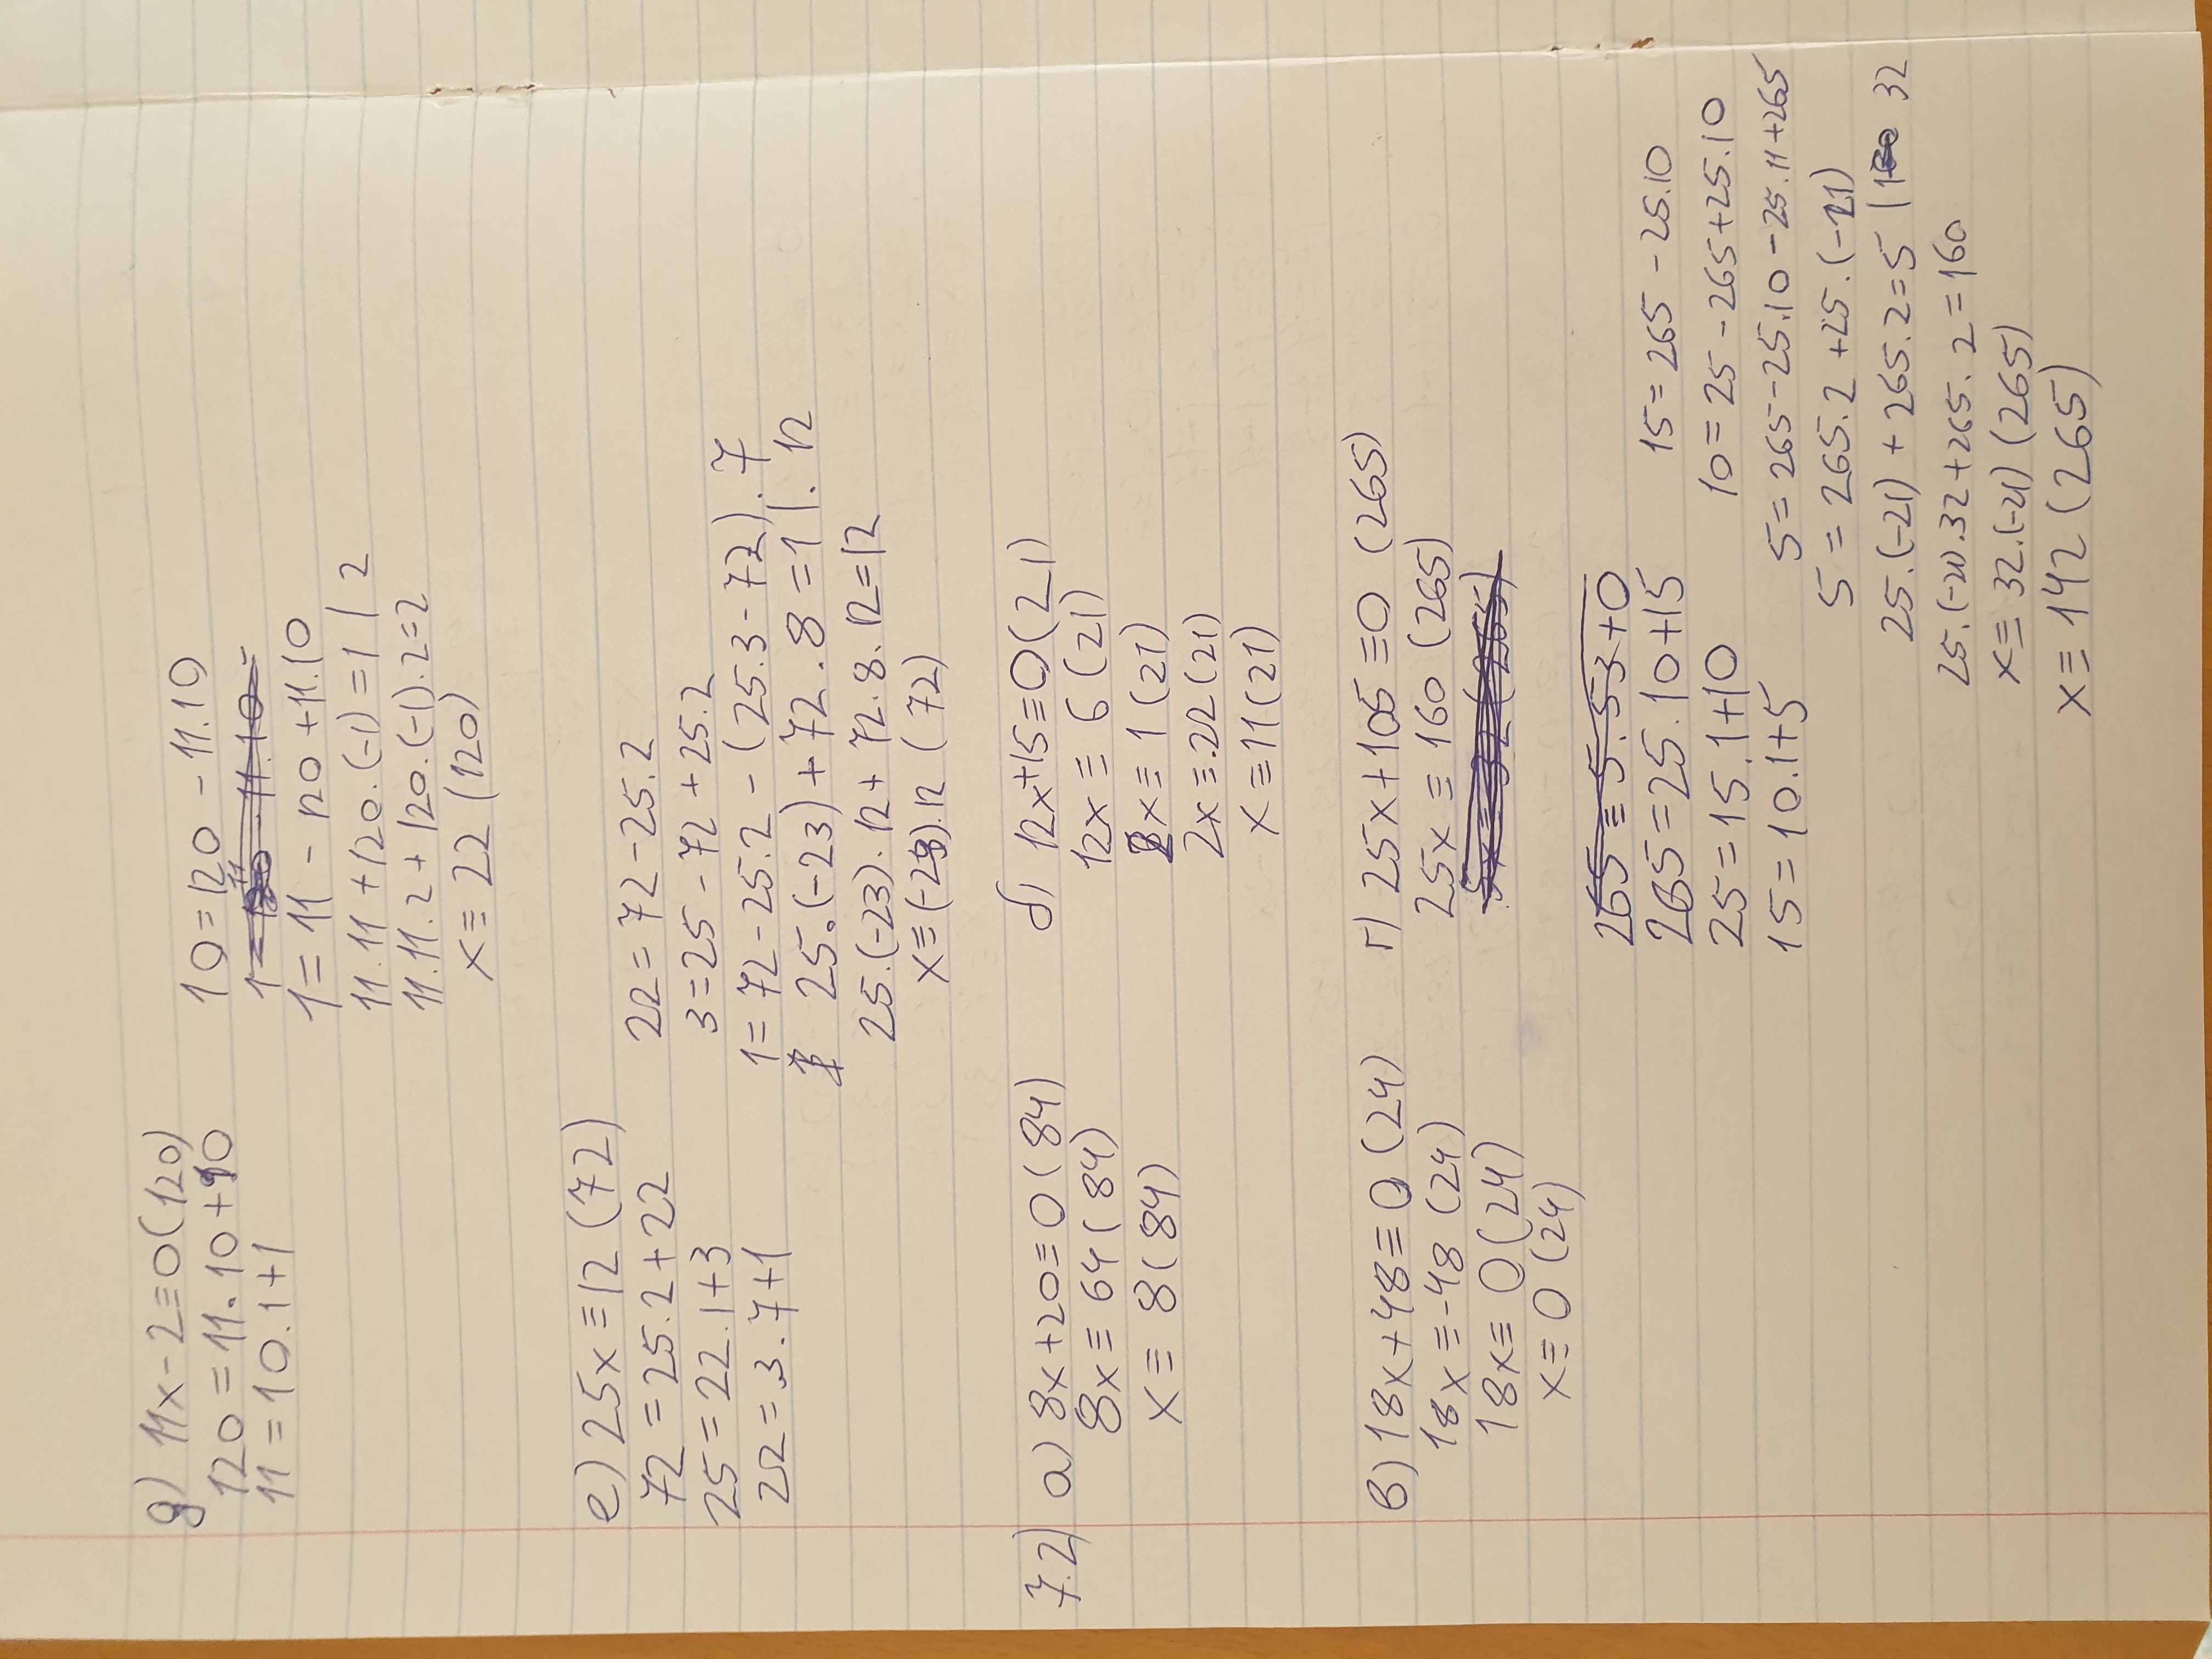 g) 11x-2≡0(120)
120=11.10+10
11=10.1+1
10=120-11.10
1=11-120+11.10
11.11+120.(-1)=1 | 2
11.11.2+120.(-1).2=2
x≡22(120)
e) 25x≡12(72)
72=25.2+22
25=22.1+3
22=3.7+1
22=72-25.2
3=25-72+25.2
1=72-25.2-(25.3-72).7
25.(-23)+72.8=1 |. 12
25.(-23).12+72.8.12=12
x≡(-23).12(72)
7.2) а) 8x+20≡0(84)
8x≡64(84)
x≡8(84)
б) 12x+15≡0(21)
12x≡6(21)
2x≡1(21)
2x≡22(21)
x≡11(21)
в) 18x+48≡0(24)
18x≡-48(24)
18x≡0(24)
x≡0(24)
г) 25x+105≡0(265)
25x≡160(265)
5x≡32(265)
265≡5.53+0
265=25.10+15
25=15.1+10
15=10.1+5
15=265-25.10
10=25-265+25.10
5=265-25.10-25.11+265
5=265.2+25.(-21)
25.(-21)+265.2=5 | 32
25.(-21).32+265.2=160
x≡32.(-21)(265)
x≡142(265)